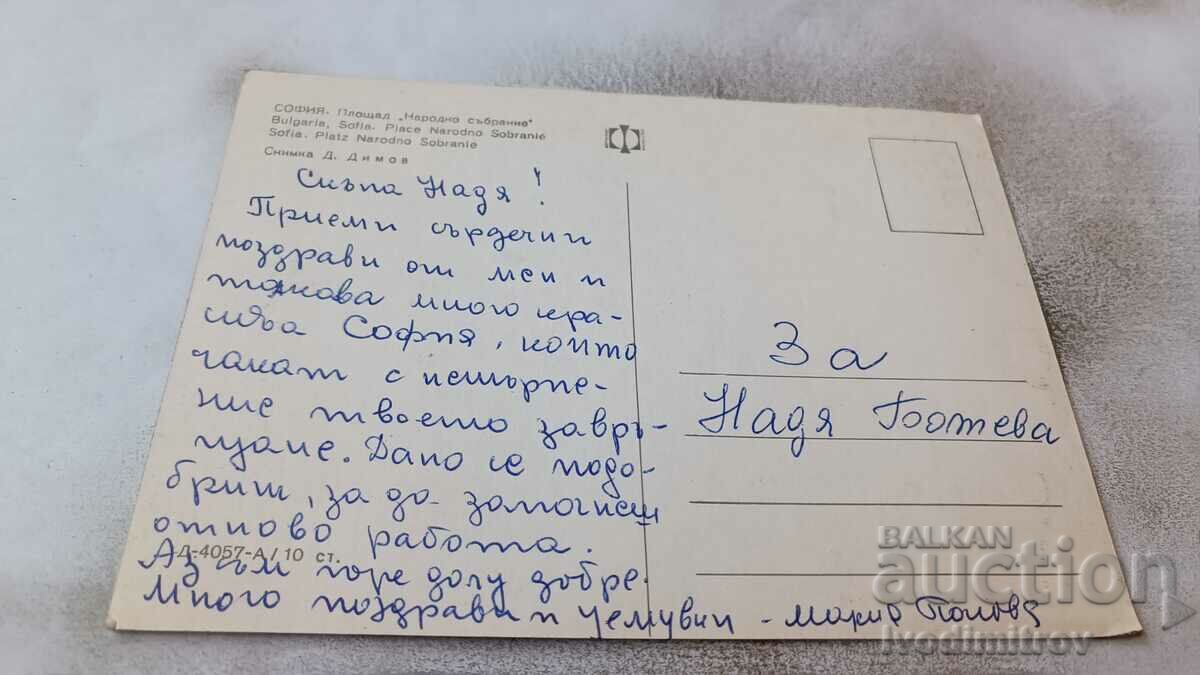 СОФИЯ. Площад „Народно събрание"
Bulgaria, Sofia. Place Narodno Sobranié
Sofia. Platz Narodno Sobranie
Снимка Д. Димов
Скъпа Надя!
Приеми сърдечни
поздрави от мен и
такова много кра-
сива София, които
чакат с нетърпе-
ние твоето завръ-
щане. Дано се подо-
бриш, за да започнеш
отново работа.
Д-4057-А/10 ст.
Аз съм горе долу добре.
Много поздрави и целувки - Мария Попова
За
Надя Ботева
BALKAN
auction
ivodimitrov